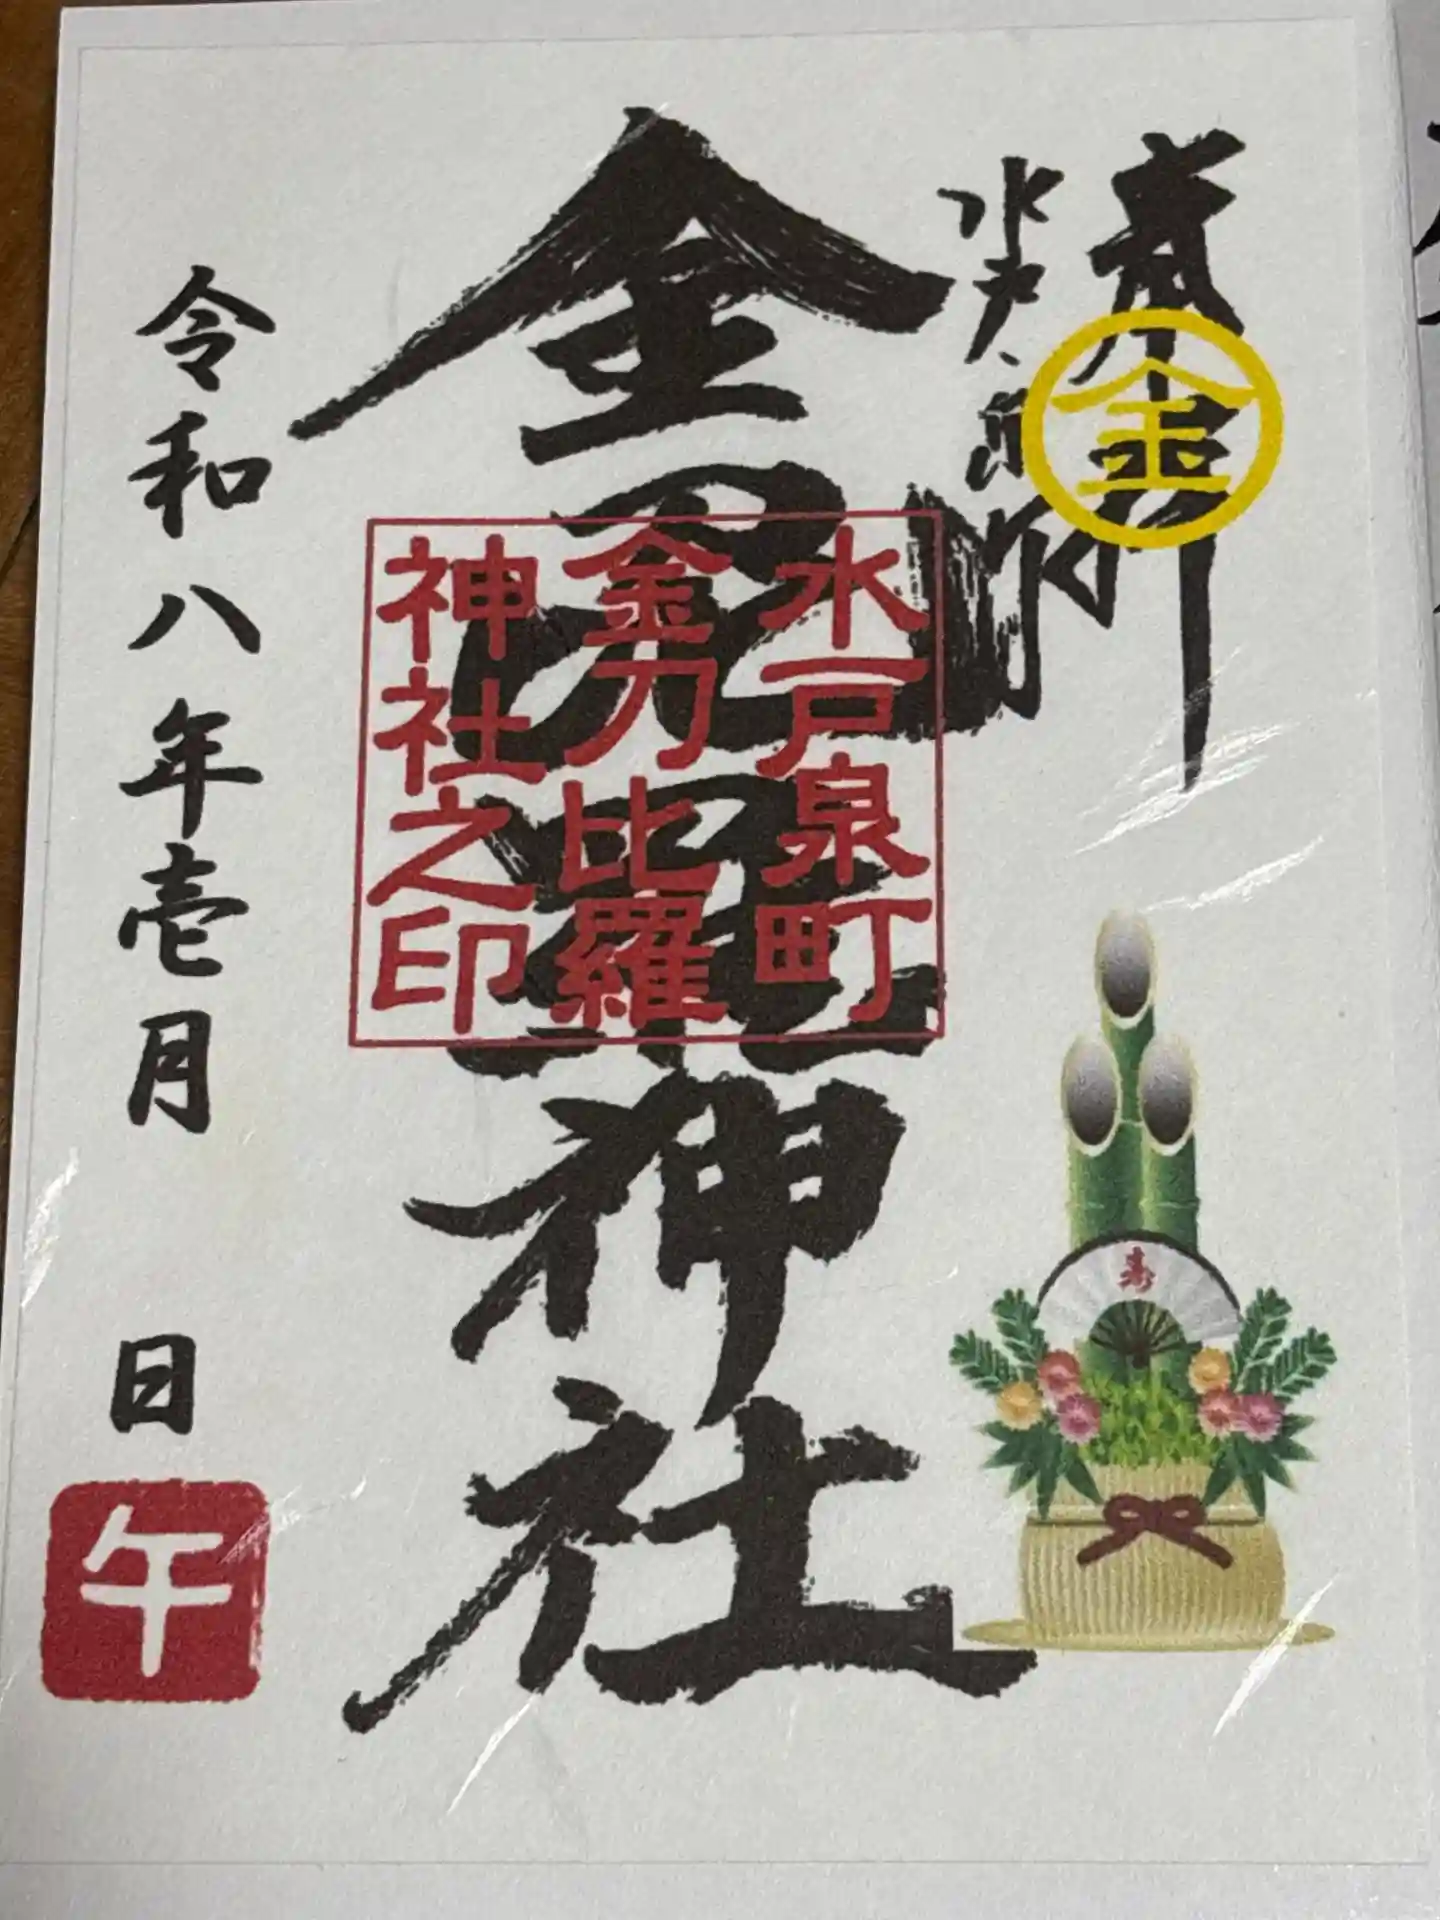 奉拝
金
水戸
金刀比羅神社
水戸泉町
金刀比羅
神社之印
寿
令和八年壱月 日
午